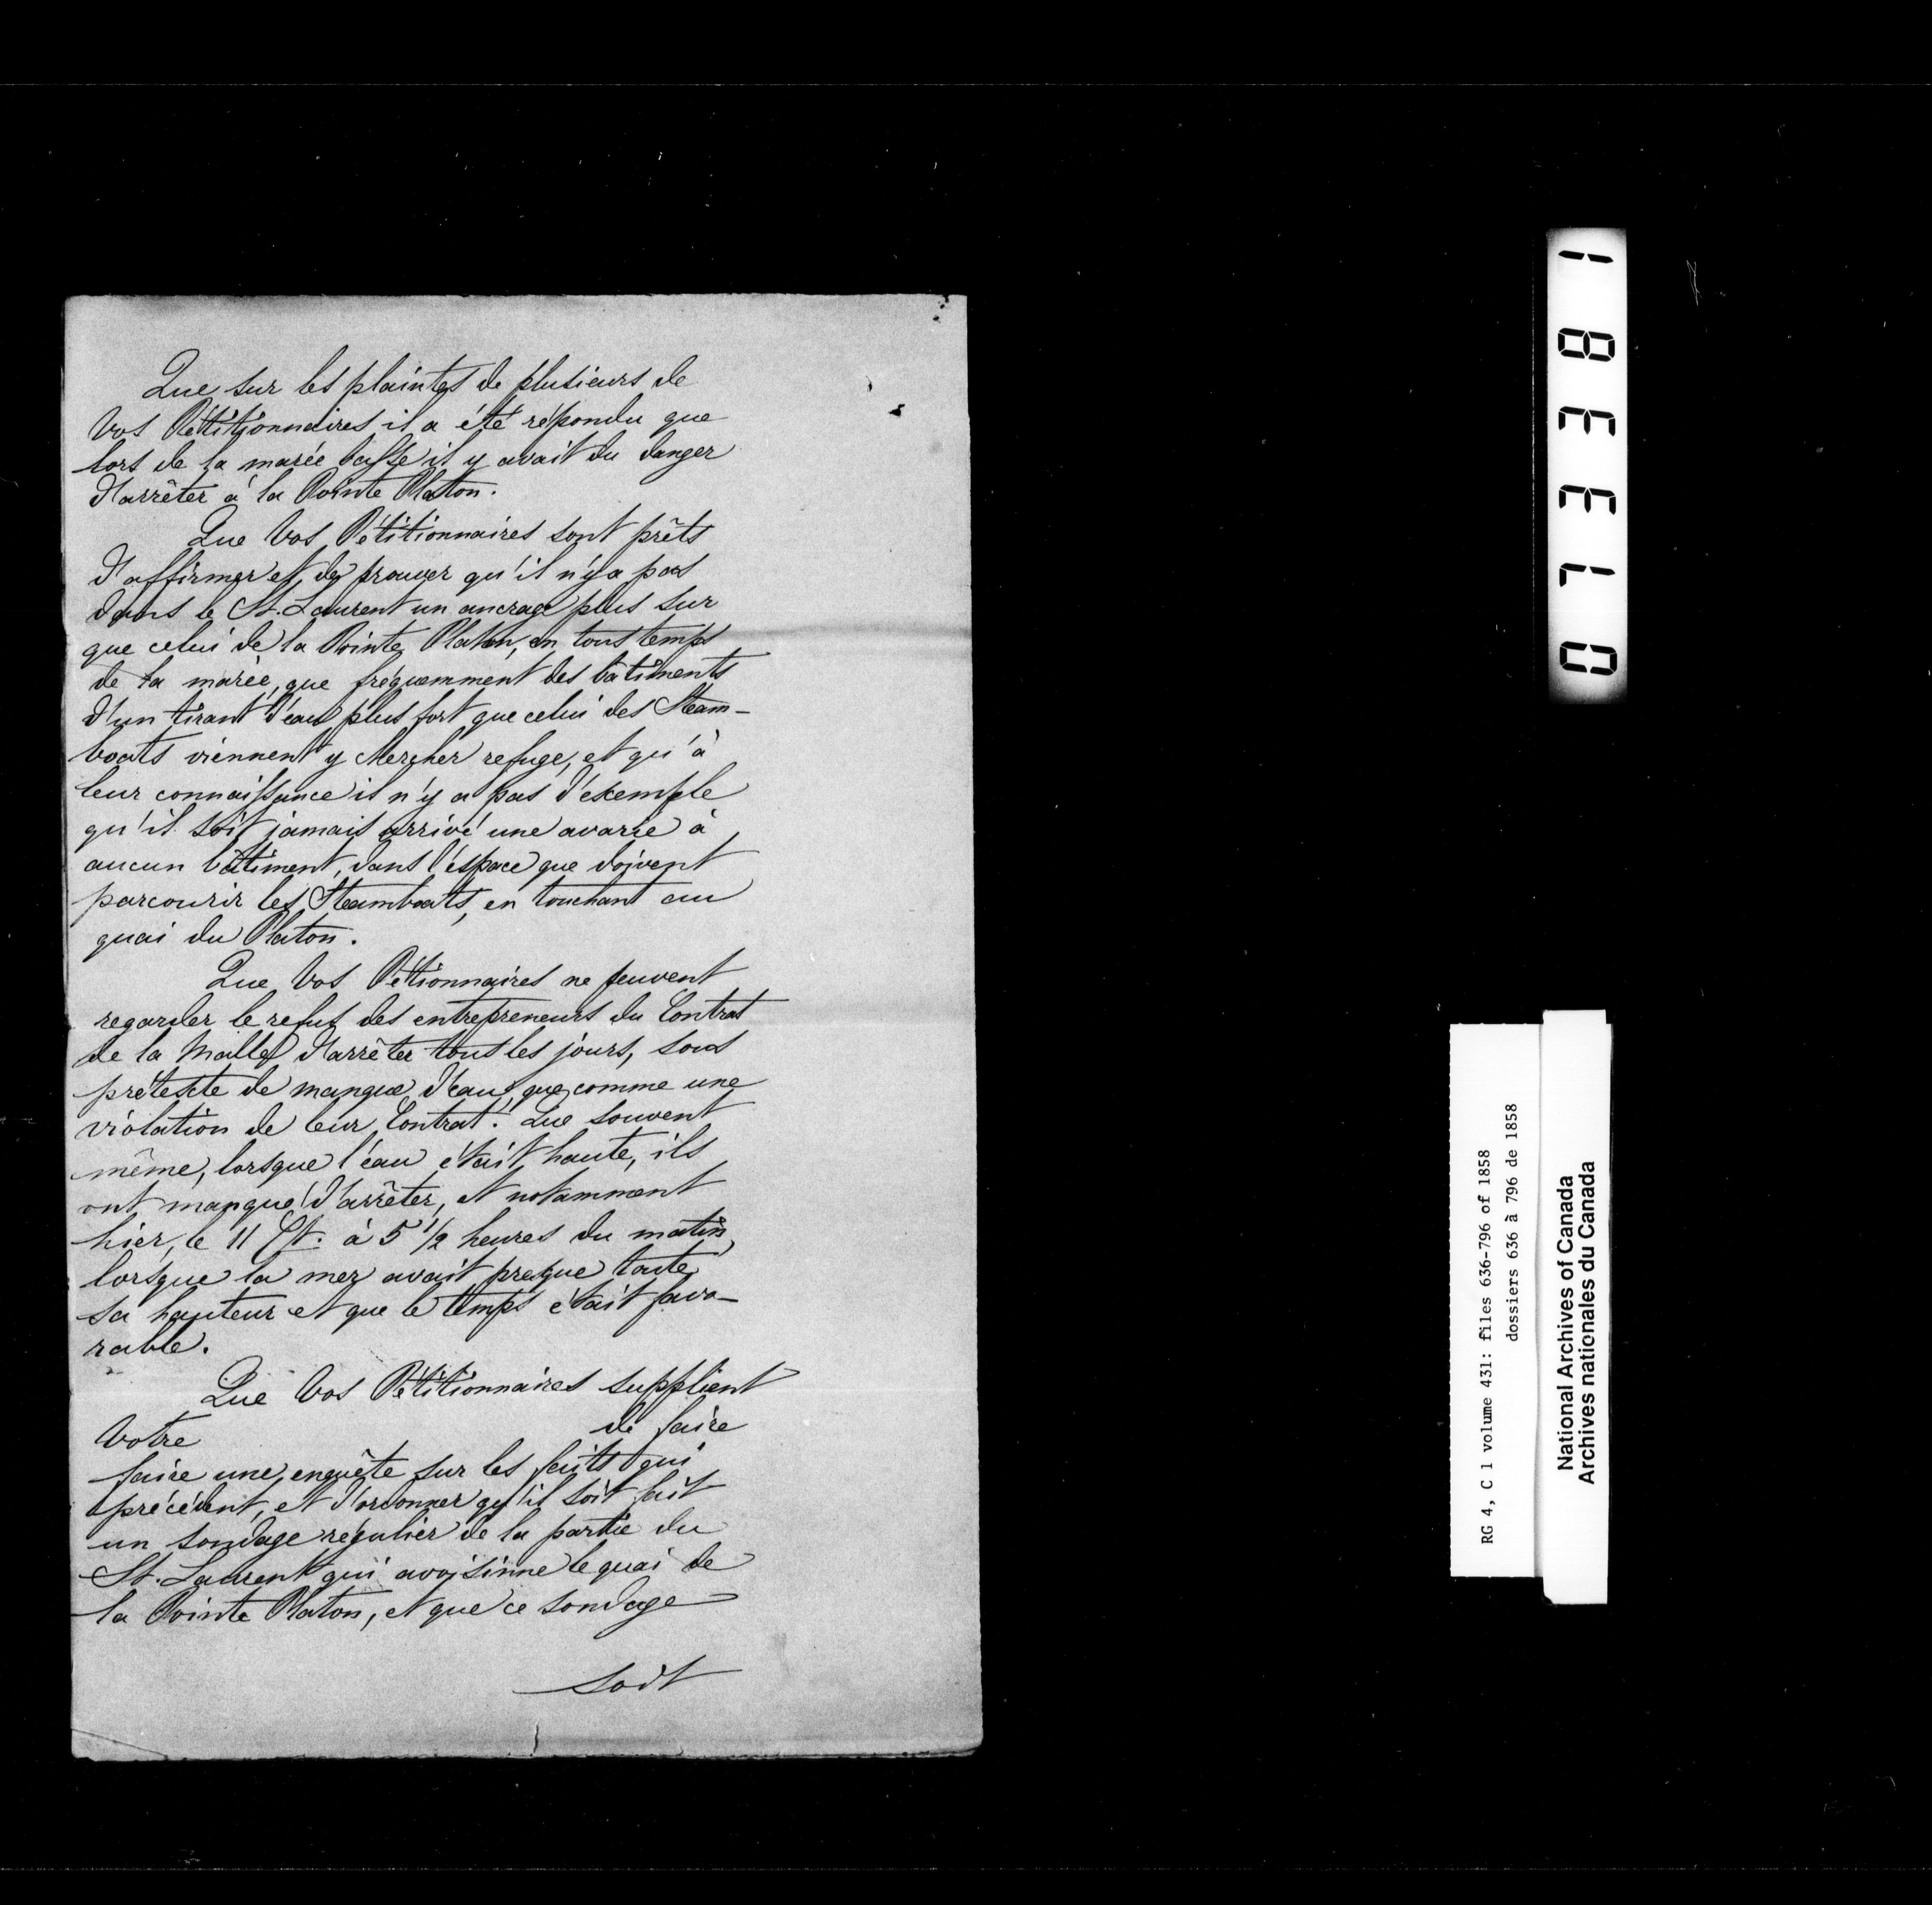 Que sur les plaintes de plusieurs de
Vos Pétitionnaires il a été répondu que
lors de la marée basse il y avait du danger
d'arrêter à la Pointe Platon.
Que Vos Pétitionnaires sont prêts
d'affirmer et de prouver qu'il n'y a pas
dans le St. Laurent un ancrage plus sur
que celui de la Pointe Platon, en tous temps
de la marée, que fréquemment des bâtiments
d'un tirant d'eau plus fort que celui des Steam-
boats viennent y chercher refuge, et qu'à
leur connaissance il n'y a pas d'exemple
qu'il soit jamais arrivé une avarie à
aucun bâtiment, dans l'espace que doivent
parcourir les Steamboats, en touchant au
quai du Platon.
Que Vos Pétionnaires ne peuvent
regarder le refus des entrepreneurs du Contrat
de la Malle d'arrêter tous les jours, sous
prétexte de manque d'eau, que comme une
violation de leur Contrat. Que souvent
même, lorsque l'eau était haute, ils
ont manqué d'arrêter, et notamment
hier, le 11 à 5 1/2 heures du matin,
lorsque la mer avait presque toute
sa hauteur et que le temps était favo-
rable.
Que Vos Pétitionnaires supplient
Votre de faire
faire une enquête sur les faits qui
précédent, et d'ordonner qu'il soit fait
un sondage régulier de la partie du
St. Laurent qui avoisinne le quai de
la Pointe Platon, et que ce sondage
soit
017331 8 1
RG 4, C 1 volume 431: files 636-796 of 1858
dossiers 636 à 796 de 1858
National Archives of Canada
Archives nationales du Canada